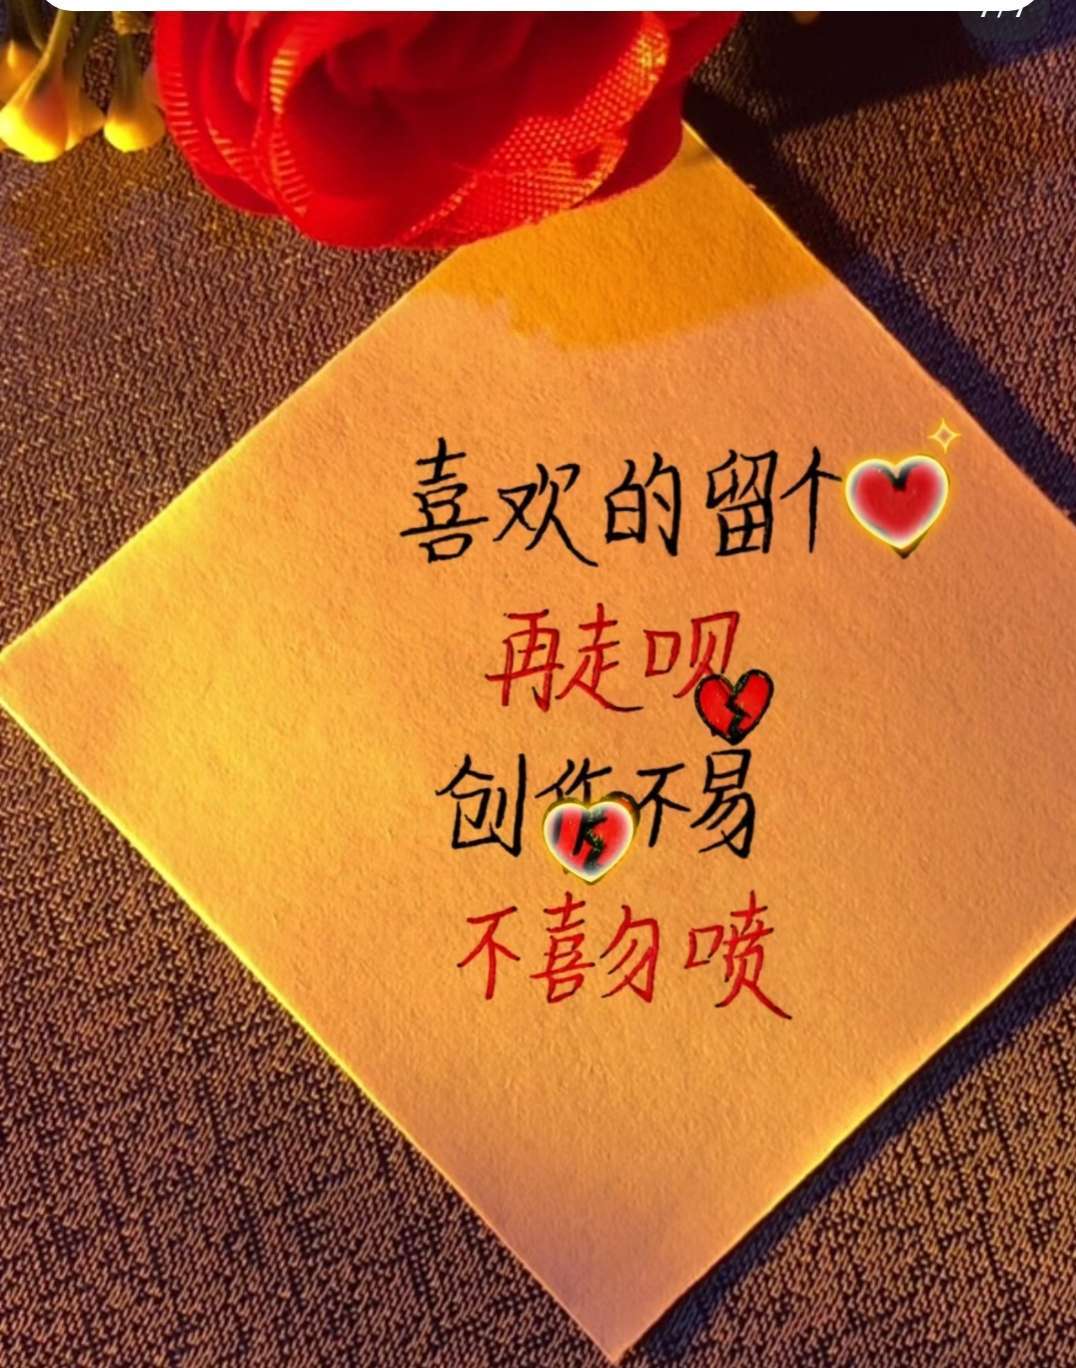 喜欢的留个
再走呗
创作不易
不喜勿喷